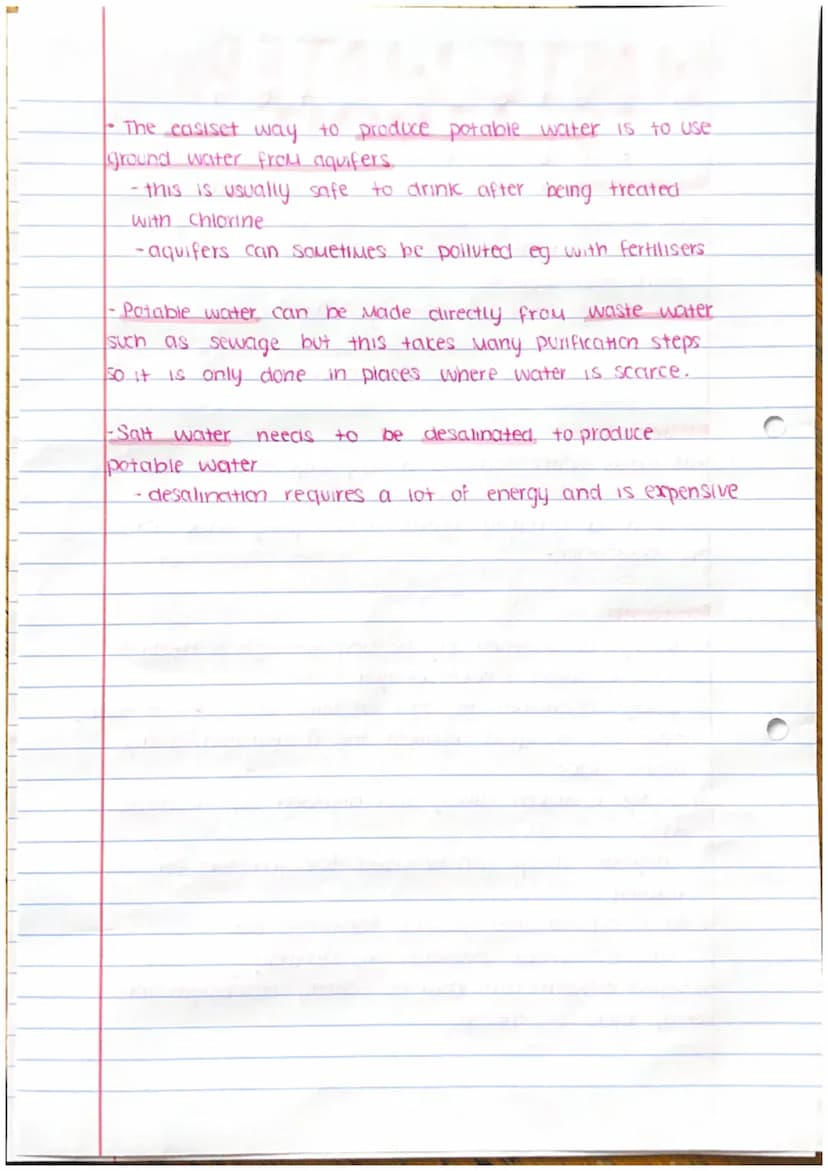 - The easiset way to produce potable water is to use
ground water from aquifers
- this is usually safe to drink after being treated
with chlorine
- aquifers can sometimes be polluted eg with fertilisers
- Potable water can be made directly from waste water
such as sewage but this takes many purification steps
so it is only done in places where water is scarce.
- Salt water needs to be desalinated to produce
potable water
- desalination requires a lot of energy and is expensive